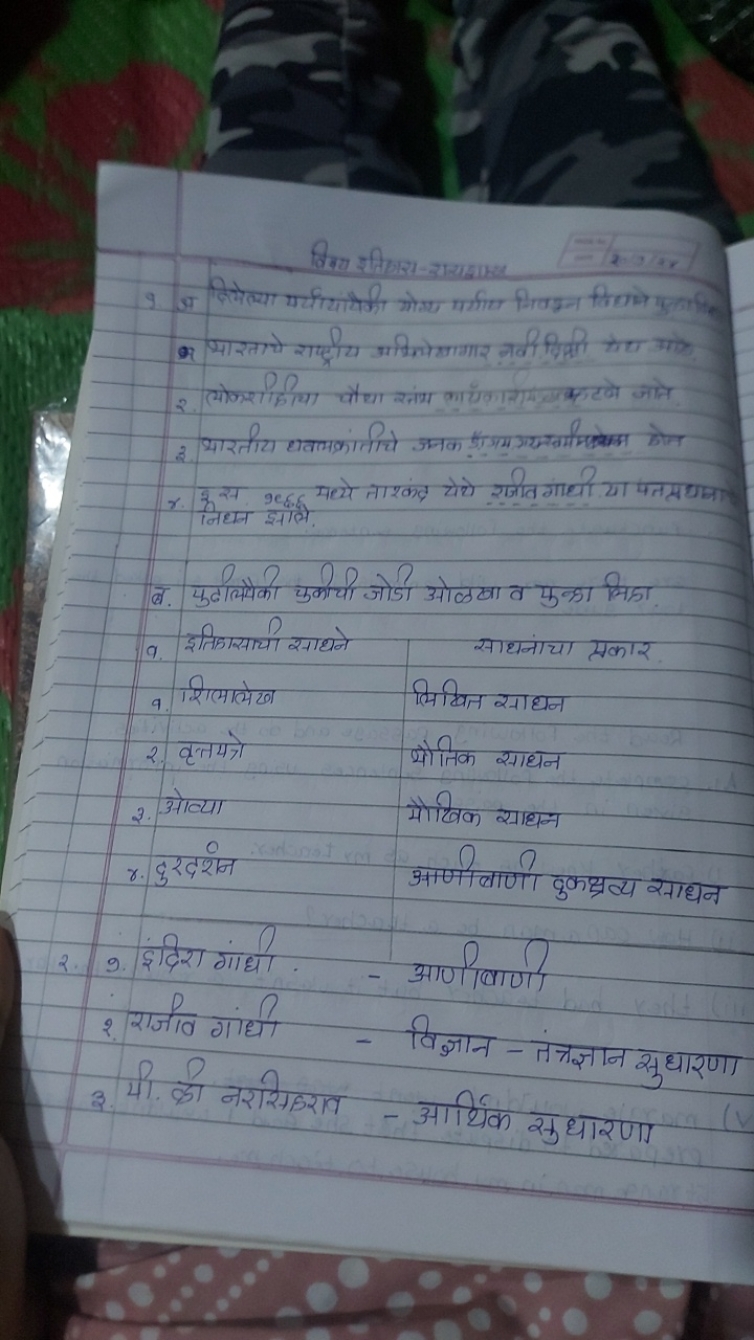 विषय इतिहास-राज्यशास्त्र
१. अ दिलेल्या पर्यायांपैकी योग्य पर्याय निवडून विधाने
१ भारताचे राष्ट्रीय अभिलेखागार नवी दिल्ली येथे आहे.
२. लोकशाहीचा चौथा स्तंभ म्हटले जाते.
३. भारतीय धवलक्रांतीचे जनक होत
४. इ स १९६६ मध्ये ताश्कंद येथे राजीव गांधी या
निधन झाले.
ब. पुढीलपैकी चुकीची जोडी ओळखा व पुन्हा लिहा.
१. इतिहासाची साधने साधनांचा प्रकार.
१. शिलालेख लिखित साधन
२. वृत्तपत्रे भौतिक साधन
३. ओव्या मौखिक साधन
४. दुरदर्शन आणीबाणी दुकश्रव्य साधन
२. १. इंदिरा गांधी. - आणीबाणी
२. राजीव गांधी - विज्ञान - तंत्रज्ञान सुधारणा
३. पी. व्ही नरसिंहराव - आर्थिक सुधारणा